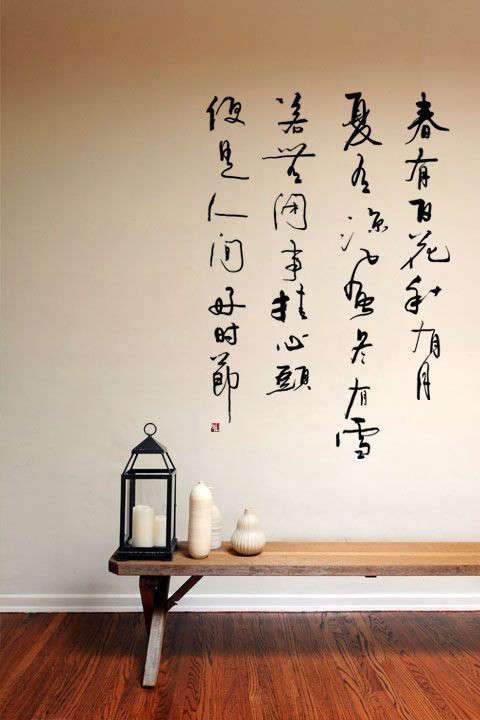 春有百花秋有月
夏有涼风冬有雪
若無闲事挂心頭
便是人间好时節